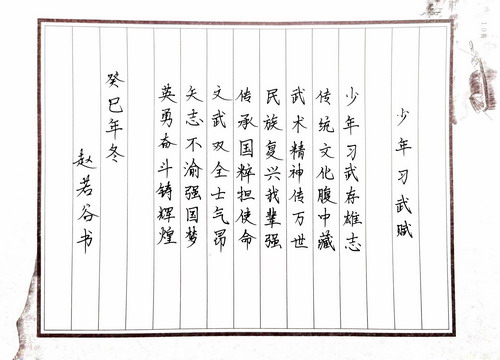 少年习武赋
少年习武存雄志
传统文化腹中藏
武术精神传万世
民族复兴我辈强
传承国粹担使命
文武双全士气昂
矢志不渝强国梦
英勇奋斗铸辉煌
癸巳年冬
赵若谷书